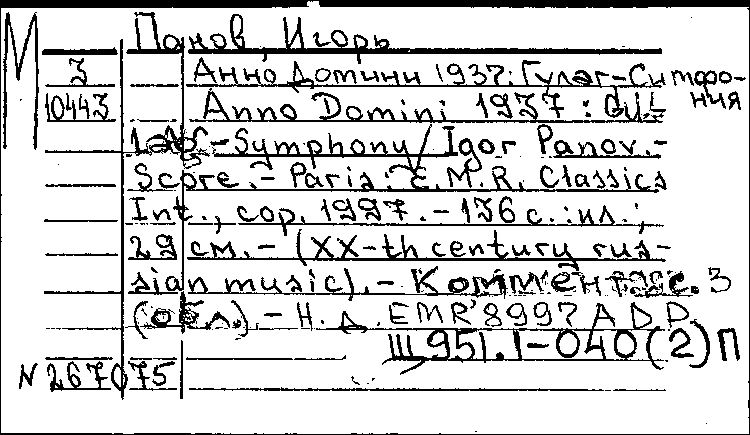 М
Панов, Игорь
3 Анно Домини 1937: Гулаг-Симфо-
10443 ния
Anno Domini 1937 : GU-
lag-Symphony / Igor Panov.-
Score.- Paris: E.M.R. Classics
Int., cop. 1997.- 136 с.:ил.;
29 см.- (XX-th century rus-
sian music).- Коммент. с. 3
(обл.).- Н. д. EMR 8997 A D P
Ш 951.1-040(2)П
N 267075